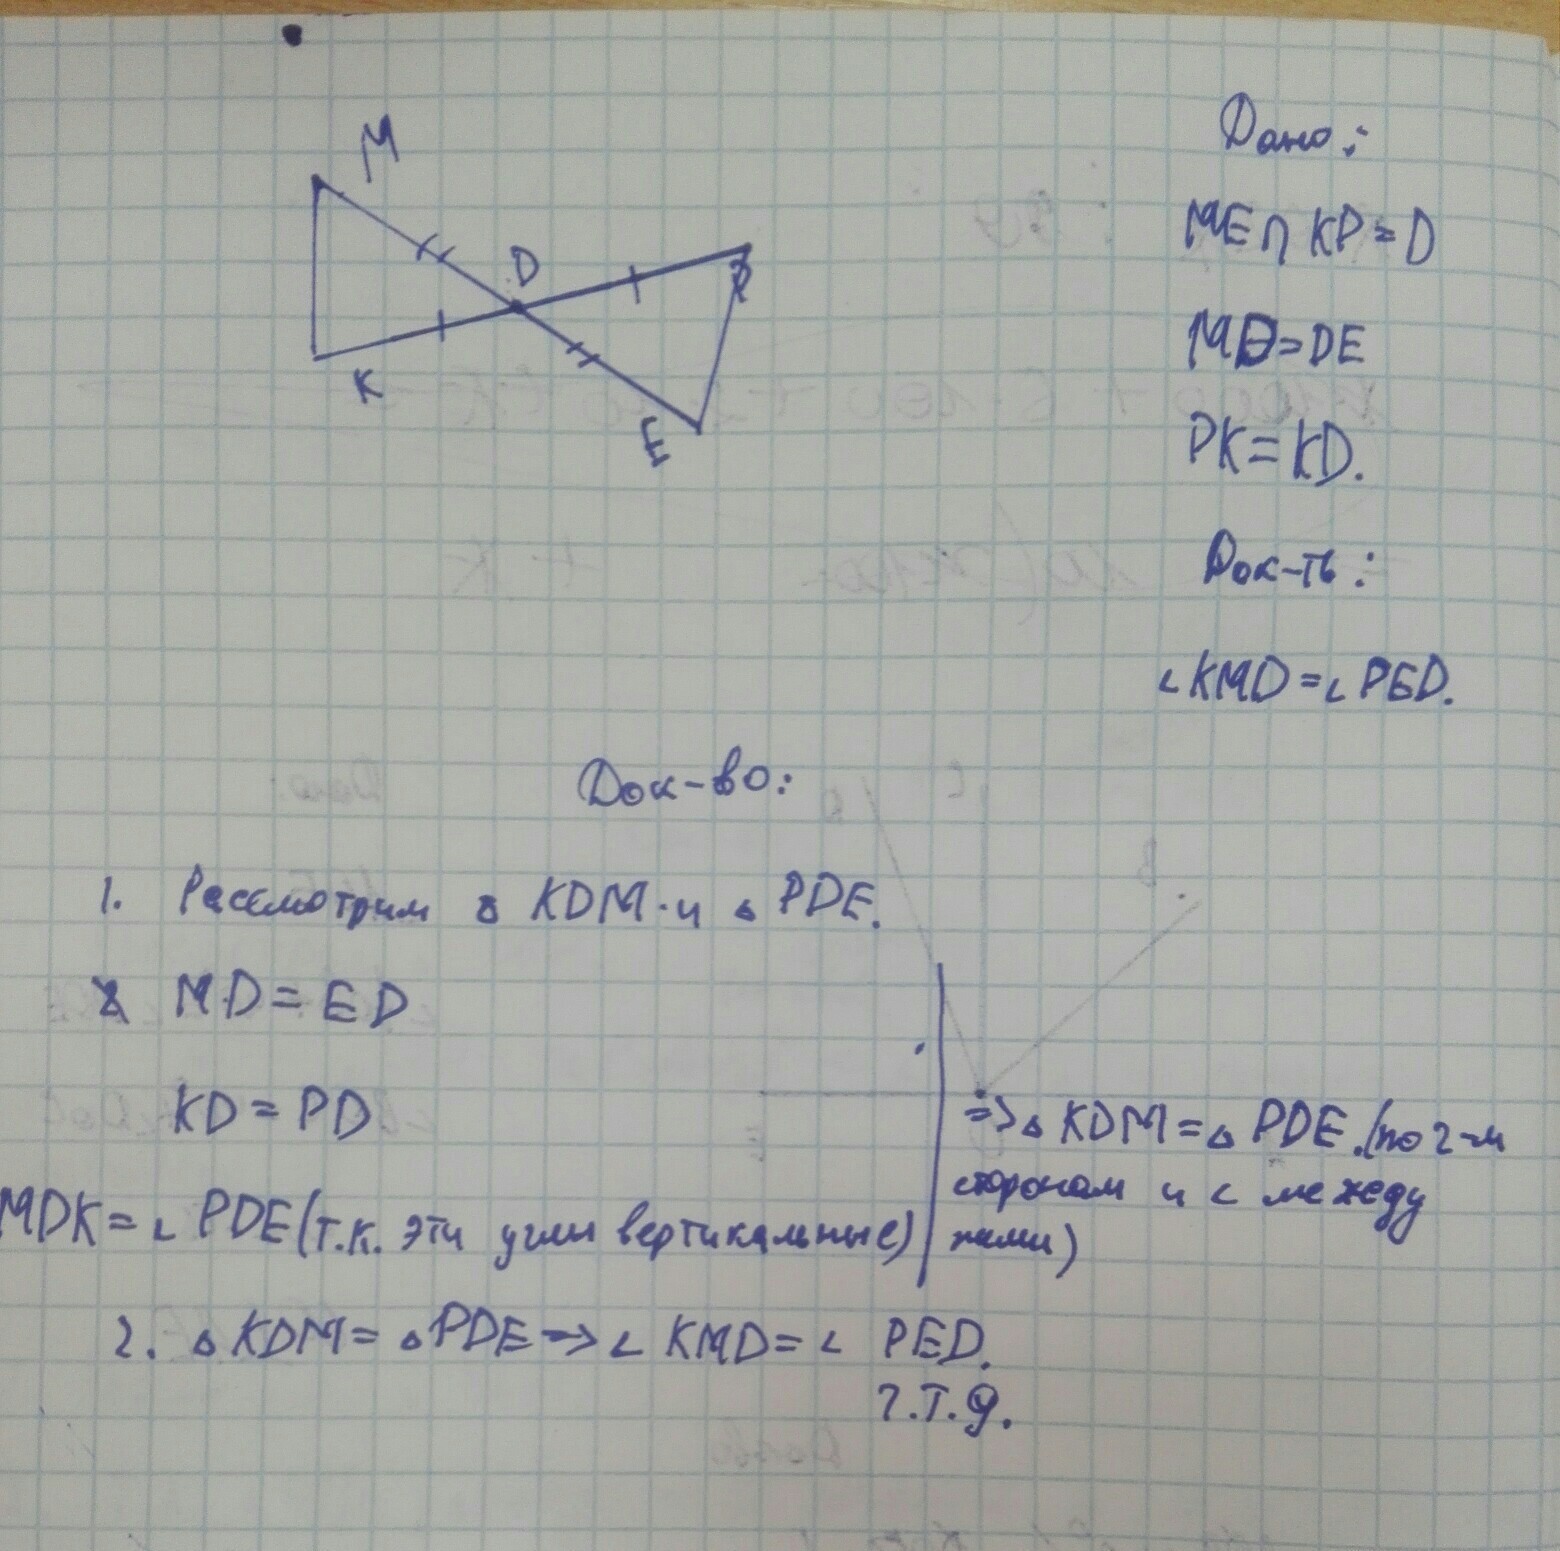 M
D
P
K
E
Дано:
ME∩KP=D
MD=DE
PK=KD.
Док-ть:
∠KMD=∠PED.
Док-во:
1. Рассмотрим ▵ KDM и ▵ PDE.
MD=ED
KD=PD
MDK=∠PDE(т.к. эти углы вертикальные)
=>▵KDM=▵PDE.(по 2-м
сторонам и ∠ между
ними)
2. ▵KDM=▵PDE=>∠KMD=∠PED.
Ч.Т.Д.